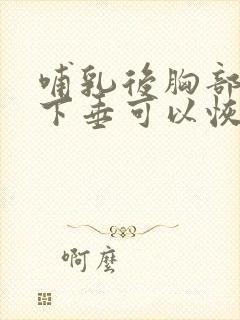 哺乳後胸部
下垂可以恢
啊麼